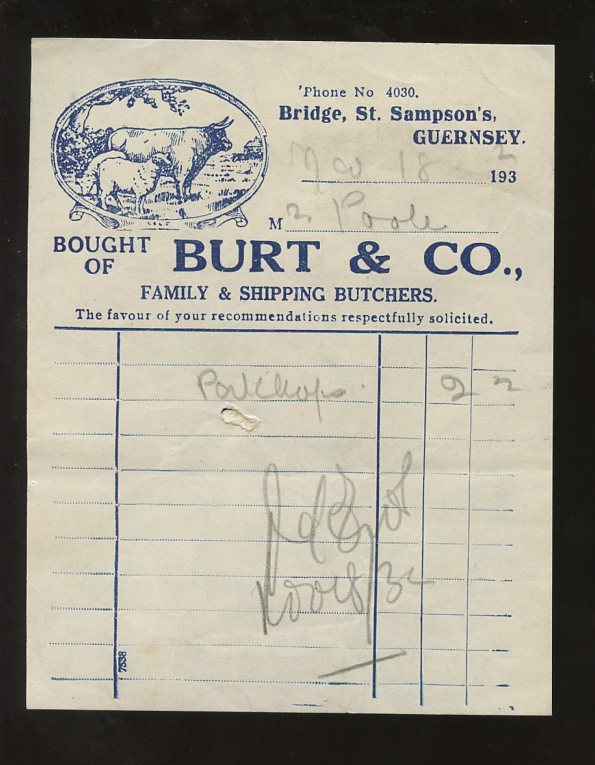 'Phone No 4030.
Bridge, St. Sampson's,
GUERNSEY.
Nov 18 1932
Mr Poole
BOUGHT OF BURT & CO.,
FAMILY & SHIPPING BUTCHERS.
The favour of your recommendations respectfully solicited.
Pork Chops. 2 2
7538